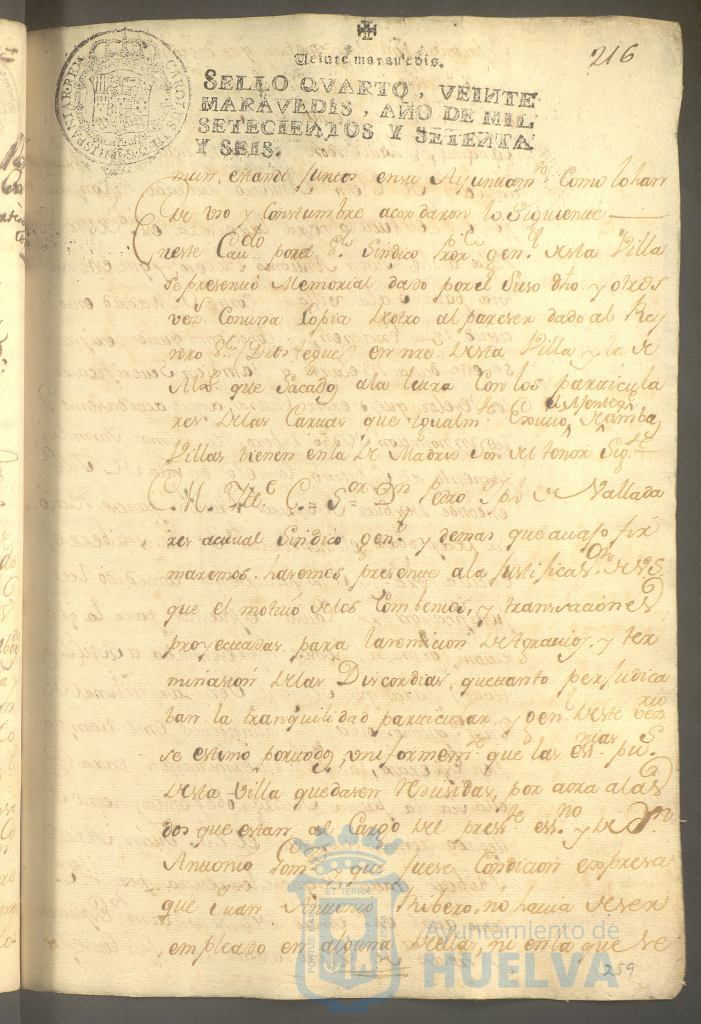 216
Veinte maravedis.
SELLO QVARTO, VEINTE
MARAVEDIS, AÑO DE MIL
SETECIENTOS Y SETENTA
Y SEIS.
mun, estando juntos en su Ayuntam.to Como lo han
De uso y Constumbre acordaron lo Siguiente
En este Cau.do por el S.r Sindico Pror. gen.l de esta Villa
se presentó Memorial dado por el Suso dho. y otros
vez.s Con una Copia de otro al pareser dado al Rey
nro S.r en nre. de esta Villa y la de
que Sacados a la letra Con los particula
res de las Causas que igualm.te
Villas tienen en la de Madrid Son del tenor Sig.te
C. M. Itt.e C. = S.or D.n Pedro Jph de Vallada
res actual Sindico gen.l y demas que avajo fir
maremos, hasemos presente a la Justificas.on de VS.
que el motivo de los Combenios, y transaciones
proyectadas para la remicion de Agravios, y ter
minasion de las Discordias, que tanto perjudica
ban la tranquilidad particular y gen.l de este
se estimó por todos, uniformem.te que las ess.nias pu.s
de esta Villa quedasen reducidas, por aora a las
dos que estan al Cargo del press.te ess.no y de D.n
Antonio y que fuese Condicion expresa
que Juan Antonio Ribero, no havia de ser
empleado en alguna de ellas, ni en la que se
Ayuntamiento de
HUELVA
259